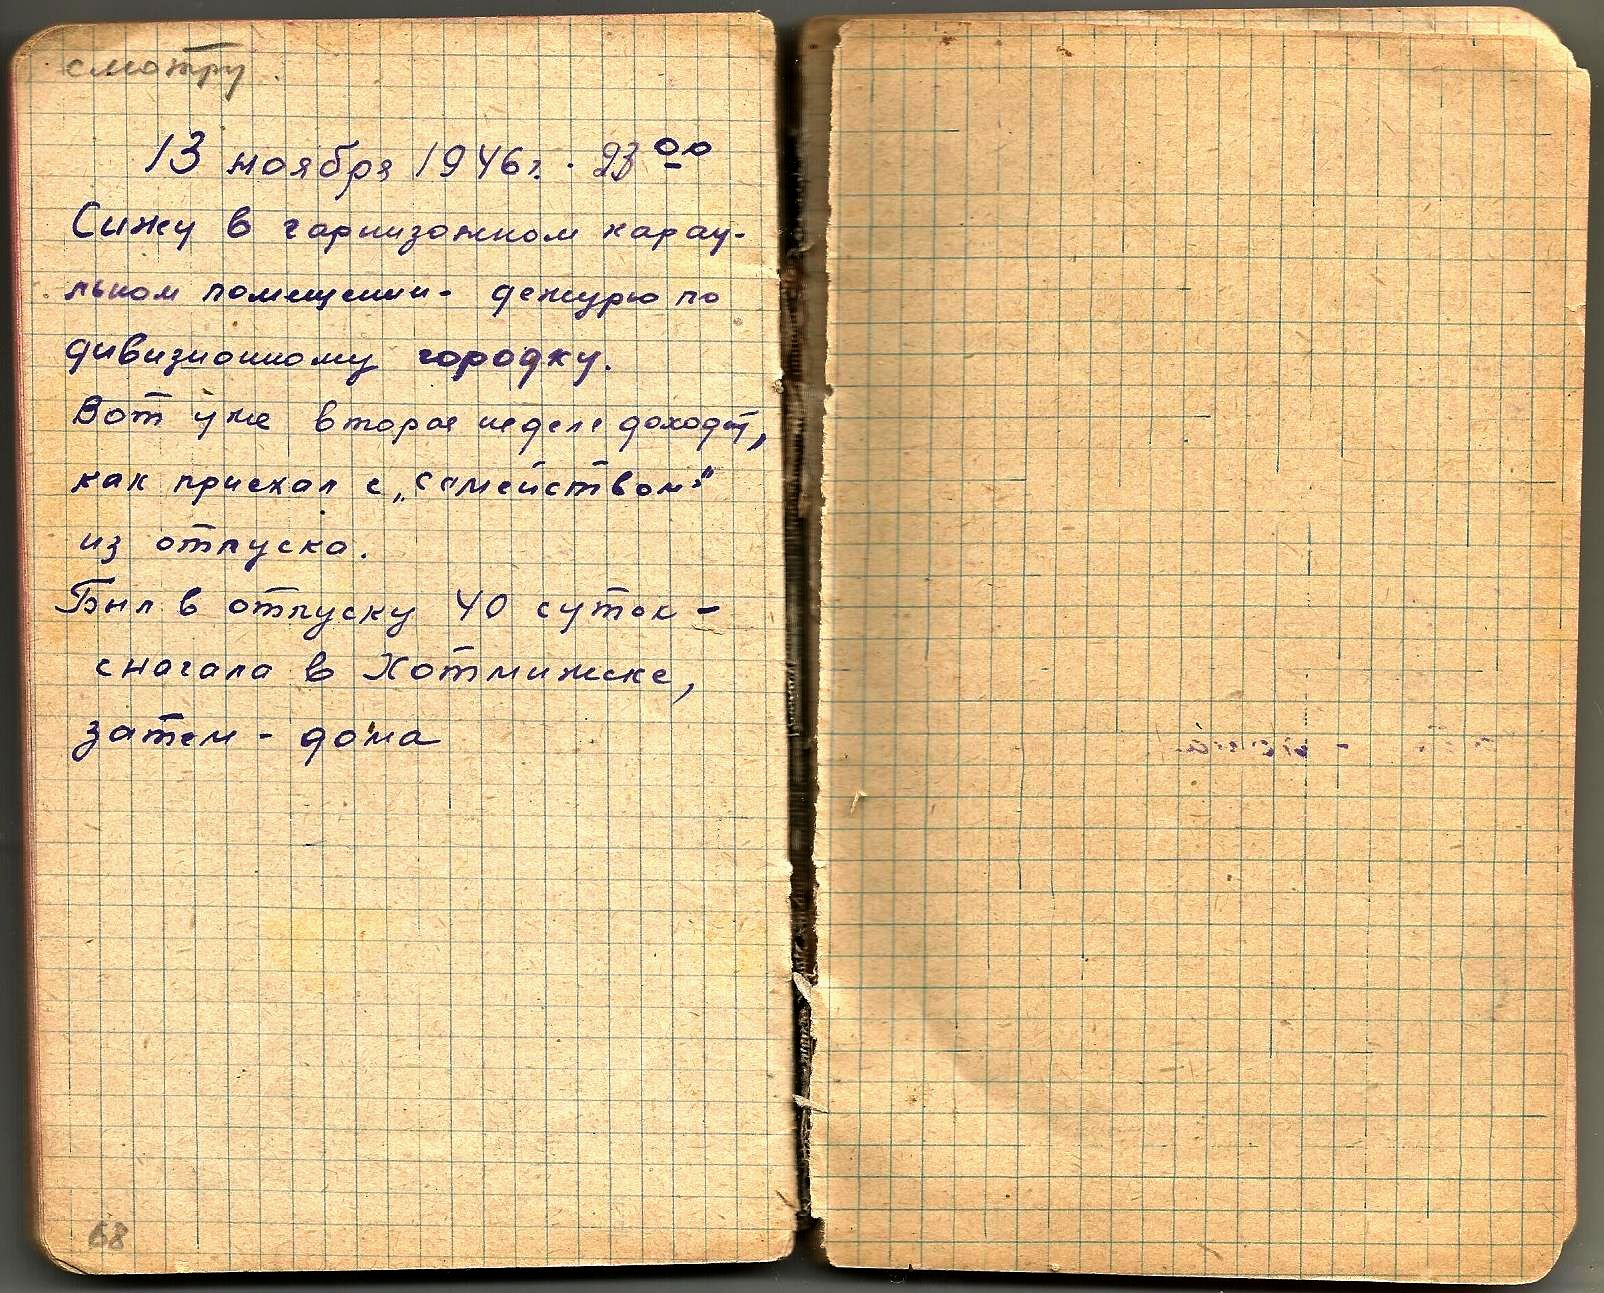 смотру.
13 ноября 1946 г. 23 00
Сижу в гарнизонном карау-
льном помещении - дежурю по
дивизионному городку.
Вот уже вторая неделя доходит,
как приехал с „семейством"
из отпуска.
Был в отпуску 40 суток -
сначала в Хотмижске,
затем - дома
68